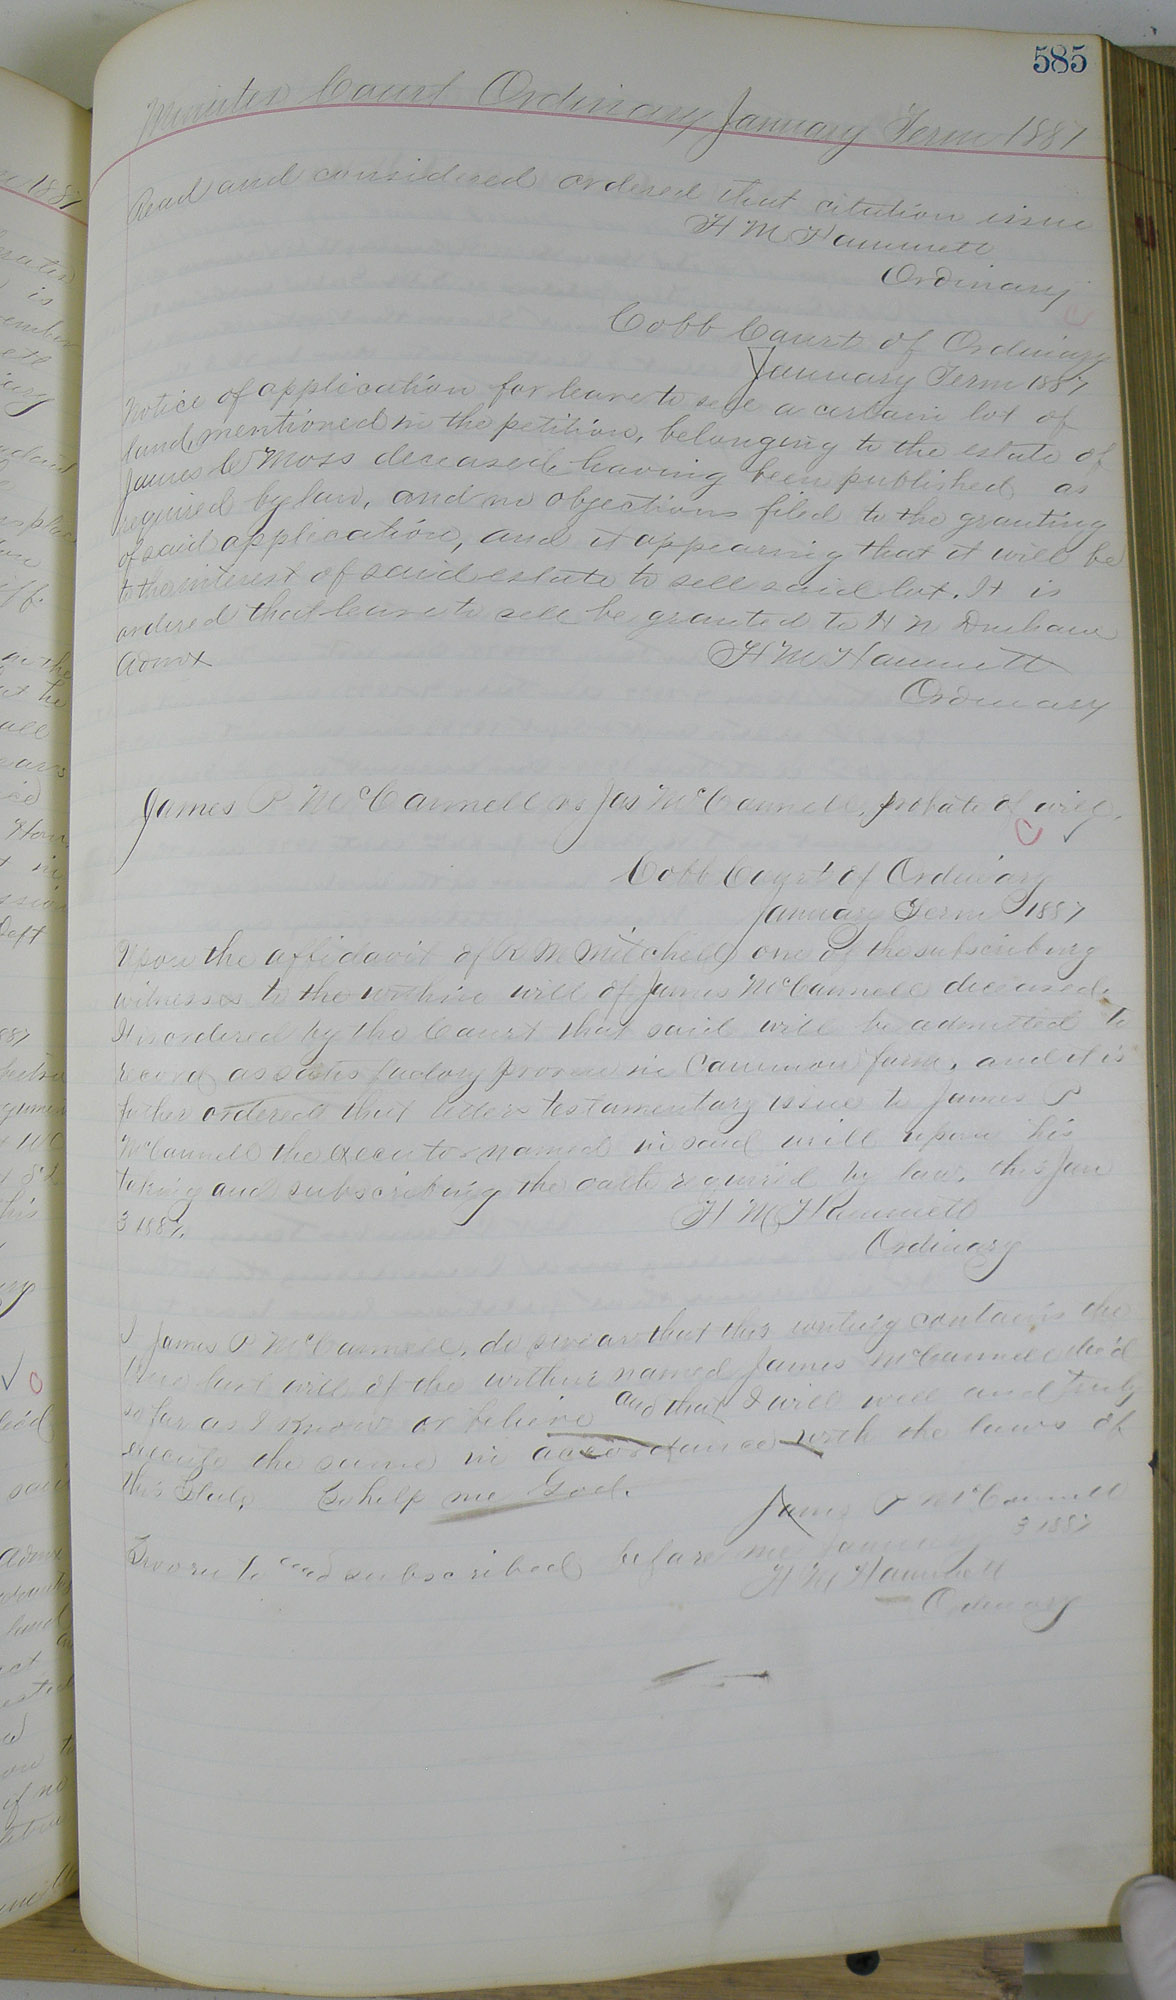 585
Minutes Court Ordinary January Term 1887
Read and considered ordered that citation issue
H M Hammett
Ordinary
Cobb Court of Ordinary
January Term 1887
Notice of application for leave to sell a certain lot of
land mentioned in the petition, belonging to the estate of
James C Moss deceased, having been published as
required by law, and no objections filed to the granting
of said application, and it appearing that it will be
to the interest of said estate to sell said lot. It is
ordered that leave to sell be granted to H N
Admx
H M Hammett
Ordinary
James P McCannell vs Jas McCannell, probate of will.
Cobb Court of Ordinary
January Term 1887
Upon the affidavit of R M Mitchell one of the subscribing
witnesses to the within will of James McCannell deceased.
It is ordered by the Court that said will be admitted to
record as satisfactory proven in Common form, and it is
further ordered that letters testamentary issue to James P
McCannell the executor named in said will upon his
taking and subscribing the oath required by law, this Jan
3 1887.
H M Hammett
Ordinary
I James P McCannell, do swear that this writing contains the
true last will of the within named James McCannell dec'd
so far as I know or believe and that I will well and truly
execute the same in accordance with the laws of
this State. So help me God.
James P McCannell
Sworn to and subscribed before me January 3 1887
H M Hammett
Ordinary